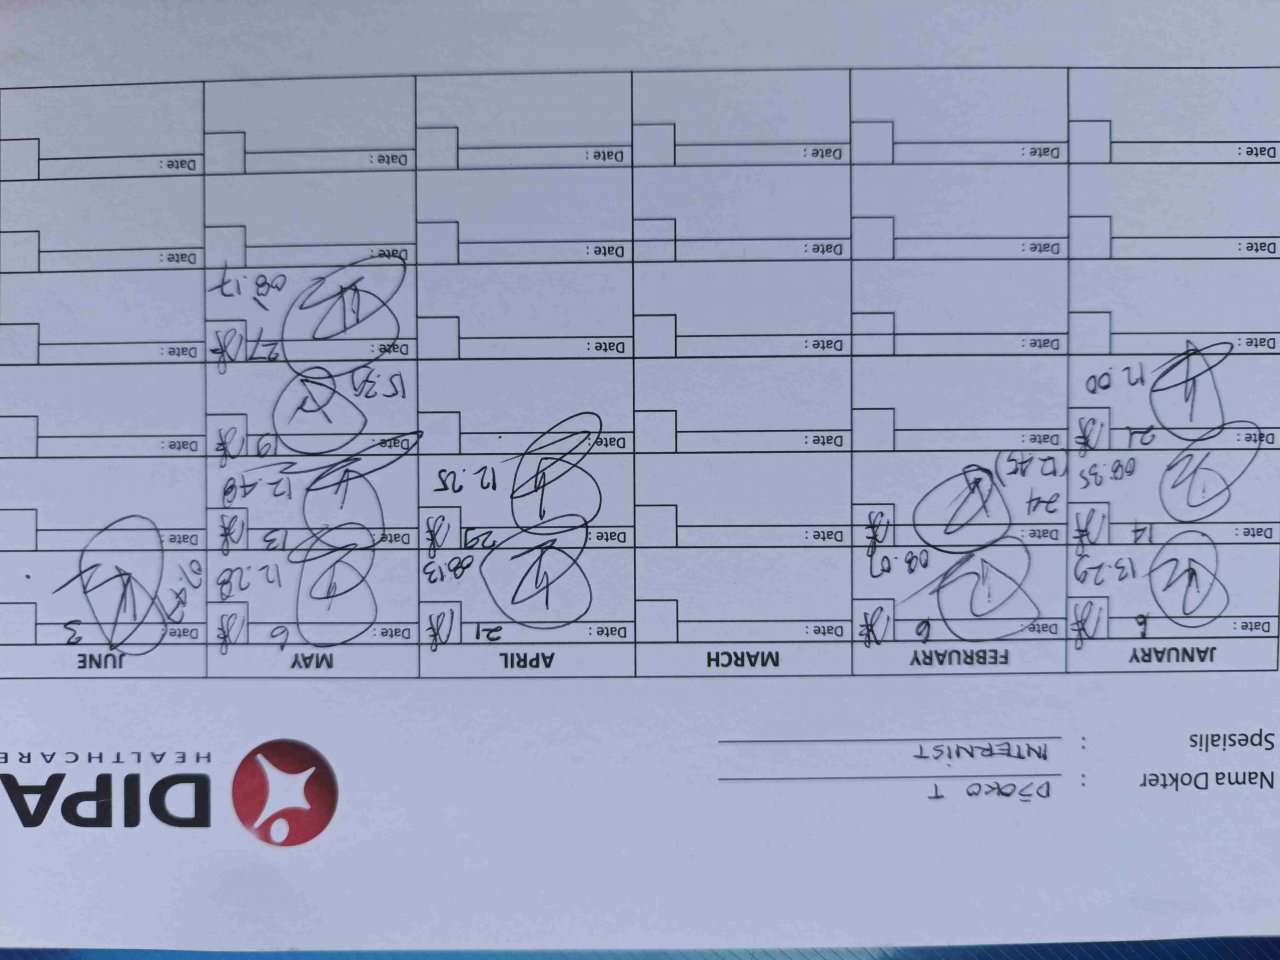 DIPA
HEALTHCARE
Nama Dokter : DJOKO T
Spesialis : INTERNIST
JANUARY FEBRUARY MARCH APRIL MAY JUNE
Date : 6 Date : 6 Date : Date : 21 Date : 6 Date : 3
13.29 08.07 08.13 12.28
Date : 14 Date : 24 Date : Date : 29 Date : 13 Date :
08.35 (12.45) 12.25 12.48
Date : 21 Date : Date : Date : Date : 19 Date :
12.00 15.35
Date : Date : Date : Date : Date : 27 Date :
08.17
Date : Date : Date : Date : Date : Date :
Date : Date : Date : Date : Date : Date :